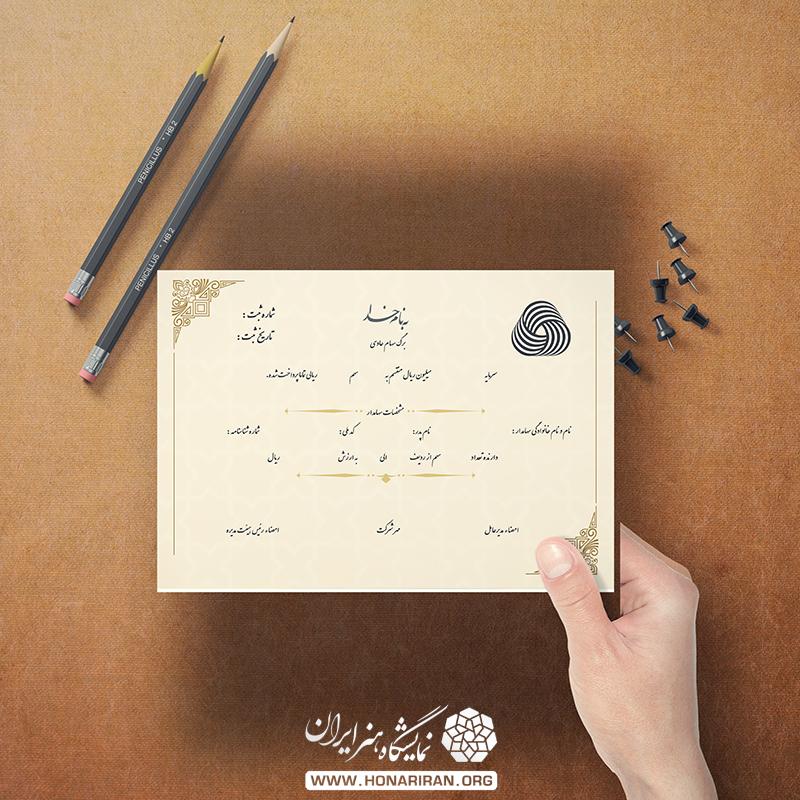 PENICILLUS * HB 2
PENICILLUS * HB 2
به نام خدا
شماره ثبت :
برگ سهام عادی
تاریخ ثبت :
سرمایه میلیون ریال منقسم به سهم ریالی تماما پرداخت شده.
مشخصات سهامدار
نام و نام خانوادگی سهامدار : نام پدر : کد ملی : شماره شناسنامه :
دارنده تعداد سهم از ردیف الی به ارزش ریال
امضاء مدیر عامل مهر شرکت امضاء رئیس هیئت مدیره
نمایشگاه هنر ایران
WWW.HONARIRAN.ORG